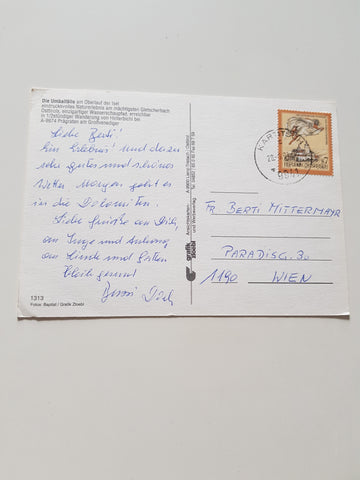 Die Umbalfälle am Oberlauf der Isel
eindrucksvolles Naturerlebnis am mächtigsten Gletscherbach
Osttirols, einzigartiger Wasserschaupfad, erreichbar
in 1/2stündiger Wanderung von Hinterbichl bei
A-9974 Prägraten am Großvenediger
Liebe Berti!
Ein Erlebnis und dazu
sehr gutes und schönes
Wetter. Morgen geht es
in die Dolomiten.
Liebe Grüße an Dich,
an und
an und
bleib gesund
1313
Fotos: Baptist / Grafik Zloebl
grafik
zloebl
Ansichtskarten-
und Werbeverlag
REPUBLIK ÖSTERREICH
FR. BERTI MITTERMAYR
PARADISG. 30
1190 WIEN